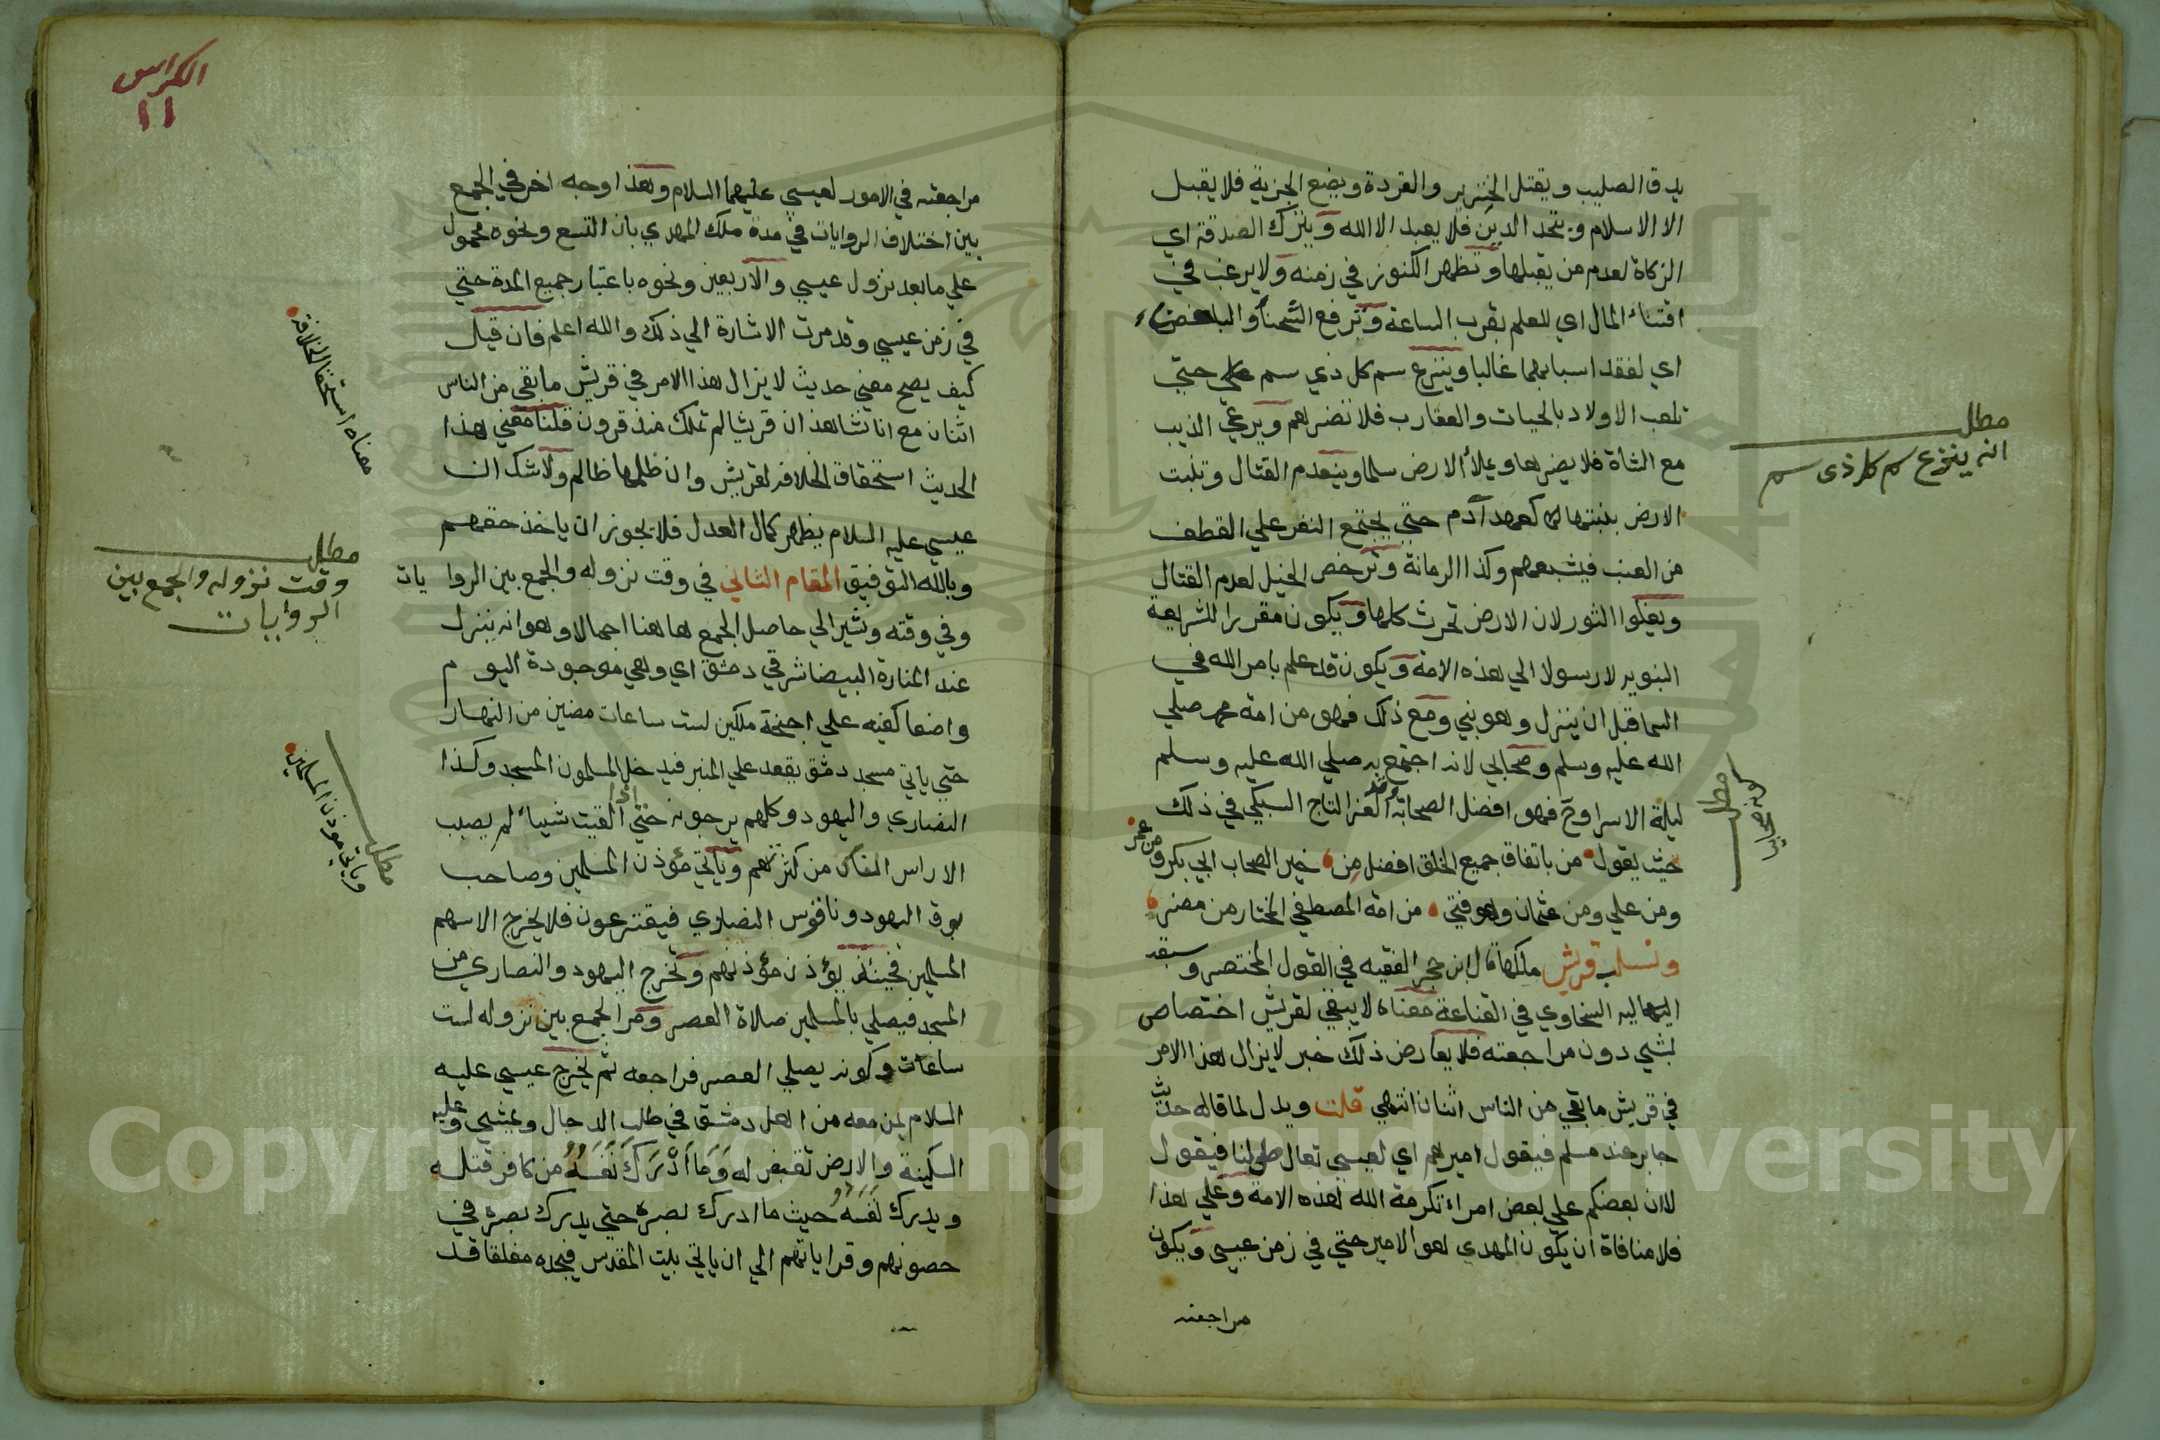 يدق الصليب ويقتل الخنزير والقردة ويضع الجزية فلا يقبل
الا الاسلام ويتحد الدين فلا يعبد الا الله ويترك الصدقة اي
الزكاة لعدم من يقبلها وتظهر الكنوز في زمنه ولا يرغب في
اقتناء المال اي للعلم بقرب الساعة وترفع الشحنا والتباغض
اي لفقد اسبابهما غالبا وينزع سم كل ذي سم حتي
تلعب الاولاد بالحيات والعقارب فلا تضرهم ويرعي الذيب
مع الشاة فلا يضرها ويملأ الارض سلما وينعدم القتال وتنبت
الارض بنبتها كعهد آدم حتي يجتمع النفر علي القطف
من العنب فيشبعهم وكذا الرمانة وترخص الخيل لعدم القتال
ويغلوا الثور لان الارض تحرث كلها ويكون مقررا للشريعة
النبوية لا رسولا الي هذه الامة ويكون قد علم بامر الله في
السما قبل ان ينزل وهو نبي ومع ذلك فهو من امة محمد صلي
الله عليه وسلم وصحابي لانه اجتمع به صلي الله عليه وسلم
ليلة الاسرا وح فهو افضل الصحابة وقد الغز التاج السبكي في ذلك
حيث يقول من باتفاق جميع الخلق افضل من خير الصحاب ابي بكر ومن عمر
ومن علي ومن عثمان وهو فتي من امة المصطفي المختار من مضر
وتسلب قريش ملكها قال ابن حجر الفقيه في القول المختصر وسبقه
اليه السخاوي في القناعة معناه لا يبقي لقريش اختصاص
بشي دون مراجعته فلا يعارض ذلك خبر لا يزال هذا الامر
في قريش ما بقي من الناس اثنان انتهي قلت ويدل لما قاله حديث
جابر عند مسلم فيقول اميرهم اي لعيسي تعال صل لنا فيقول
لا ان بعضكم علي بعض امراء تكرمة الله لهذه الامة وعلي هذا
فلا منافاة ان يكون المهدي هو الامير حتي في زمن عيسي ويكون
مراجعته
مطلب
انه ينزع سم كل ذي سم
مطلب
كونه صحابيا
الكراس
١١
مراجعته في الامور لعيسي عليهما السلام وهذا وجه اخر في الجمع
بين اختلاف الروايات في مدة ملك المهدي بان التسع ونحوه محمول
علي ما بعد نزول عيسي والاربعين ونحوه باعتبار جميع المدة حتي
في زمن عيسي وقد مرت الاشارة الي ذلك والله اعلم فان قيل
كيف يصح معني حديث لا يزال هذا الامر في قريش ما بقي من الناس
اثنان مع انا نشاهد ان قريشا لم تملك منذ قرون قلنا معني هذا
الحديث استحقاق الخلافة لقريش وان ظلمها ظالم ولا شك ان
عيسي عليه السلام يظهر كمال العدل فلا يجوز ان ياخذ حقهم
وبالله التوفيق المقام الثاني في وقت نزوله والجمع بين الروايات
وفي وقته ونشير الي حاصل الجمع ها هنا اجمالا وهو انه ينزل
عند المنارة البيضا شرقي دمشق اي وهي موجودة اليوم
واضعا كفيه علي اجنحة ملكين لست ساعات مضين من النهار
حتي ياتي مسجد دمشق يقعد علي المنبر فيدخل المسلمون المسجد وكذا
النصاري واليهود وكلهم يرجونه حتي اذا القيت شياء لم يصب
الا راس انسان من كثرتهم وياتي مؤذن المسلمين وصاحب
بوق اليهود وناقوس النصاري فيقترعون فلا يخرج الا سهم
المسلمين فحينئذ يؤذن مؤذنهم وتخرج اليهود والنصاري من
المسجد فيصلي بالمسلمين صلاة العصر ومر الجمع بين نزوله لست
ساعات وكونه يصلي العصر فراجعه ثم يخرج عيسي عليه
السلام بمن معه من اهل دمشق في طلب الدجال ويمشي وعليه
السكينة والارض تقبض له وما ادرك نفسه من كافر قتله
ويدرك نفسه حيث ما ادرك بصره حتي يدرك بصره في
حصونهم وقراياتهم الي ان ياتي بيت المقدس فيجده مغلقا قد
معناه استحقا الخلافة
مطلب
وقت نزوله والجمع بين
الروايات
مطلب
وياتي مؤذن المسلمين
Copyright © King Saud University